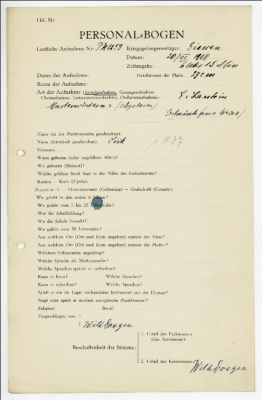 Lfd. Nr.
PERSONAL-BOGEN
Lautliche Aufnahme Nr.: Kriegsgefangenenlager: Giessen
Datum:
Zeitangabe:
Dauer der Aufnahme: Durchmesser der Platte: 27 cm
Raum der Aufnahme:
Art der Aufnahme (Sprachaufnahme, Gesangsaufnahme,
Choraufnahme, Instrumentenaufnahme, Orchesteraufnahme):
Name (in der Muttersprache geschrieben):
Name (lateinisch geschrieben):
Vorname:
Wann geboren (oder ungefähres Alter)?
Wo geboren (Heimat)?
Welche größere Stadt liegt in der Nähe des Geburtsortes?
Kanton — Kreis (Ujedsd):
Departement — Gouvernement (Gubernija) — Grafschaft (County):
Wo gelebt in den ersten 6 Jahren?
Wo gelebt vom 7. bis 20. Lebensjahr?
Was für Schulbildung?
Wo die Schule besucht?
Wo gelebt vom 20. Lebensjahr?
Aus welchem Ort (Ort und Kreis angeben) stammt der Vater?
Aus welchem Ort (Ort und Kreis angeben) stammt die Mutter?
Welchem Volksstamm angehörig?
Welche Sprache als Muttersprache?
Welche Sprachen spricht er außerdem?
Kann er lesen? Welche Sprachen?
Kann er schreiben? Welche Sprachen?
Spielt er ein im Lager vorhandenes Instrument aus der Heimat?
Singt oder spielt er moderne europäische Musikweisen?
Religion: Beruf:
Vorgeschlagen von: 1.
2. Wilh. Doegen
Beschaffenheit der Stimme:
1. Urteil des Fachmannes
(des Assistenten):
2. Urteil des Kommissars: Wilh. Doegen